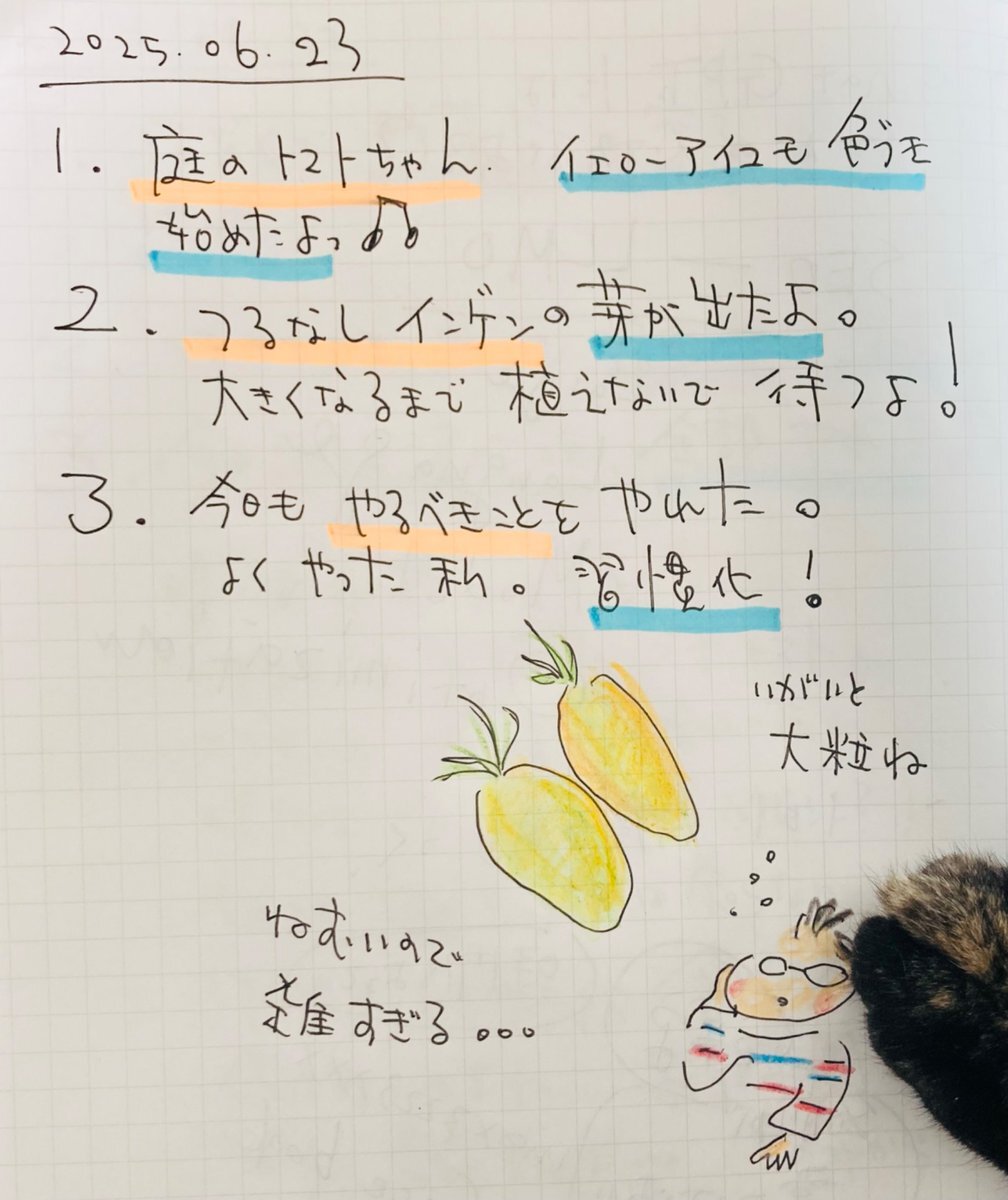 2025.06.23
1. 庭のトマトちゃん. イエローアイコも色づモ
始めたよっ♫
2. つるなしインゲンの芽が出たよ。
大きくなるまで植えないで待つよ!
3. 今日もやるべきことをやれた。
よくやった私。習慣化!
いがいと
大粒ね
ねむいので
雑すぎる...